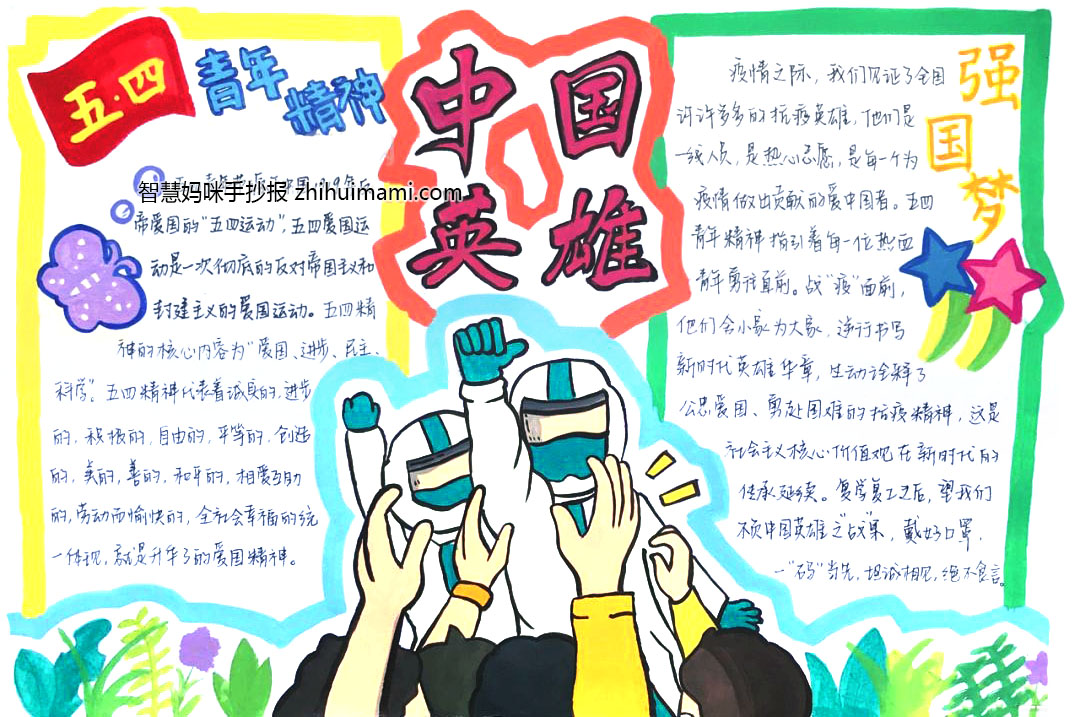 五·四
青年
精神
中国
英雄
强
国
梦
智慧妈咪手抄报 zhihuimami.com
帝爱国的“五四运动”，五四爱国运
动是一次彻底的反对帝国主义和
封建主义的爱国运动。五四精
神的核心内容为“爱国、进步、民主、
科学”。五四精神代表着诚良的，进步
的，积极的，自由的，平等的，创造
的，美的，善的，和平的，相爱互助
的，劳动而愉快的，全社会幸福的统
一体现，就是升华了的爱国精神。
疫情之际，我们见证了全国
许许多多的抗疫英雄，他们是
一线人员，是热心志愿，是每一个为
疫情做出贡献的爱中国者。五四
青年精神指引着每一位热血
青年勇往直前。战“疫”面前，
他们舍小家为大家，逆行书写
新时代英雄华章，生动诠释了
公忠爱国、勇赴国难的抗疫精神，这是
社会主义核心价值观在新时代的
传承延续。复学复工之后，望我们
不负中国英雄之“战”果，戴好口罩，
一“码”当先，坦诚相见，绝不食言。